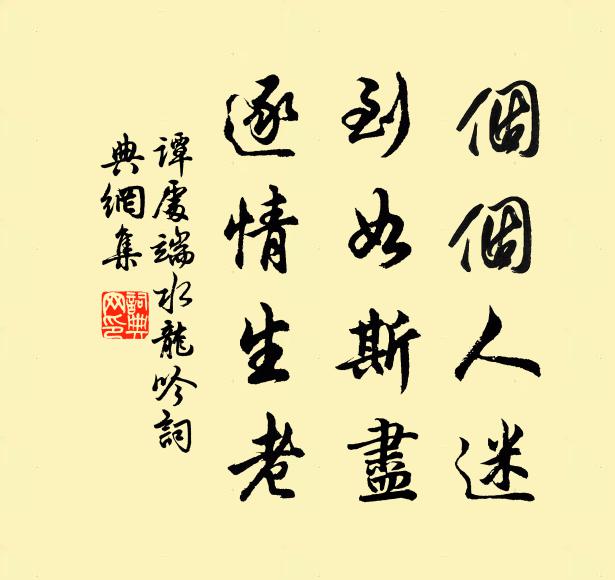 個個人迷
到如斯盡
逐情生老
譚處端水龍吟詞
典網集
詞典网印